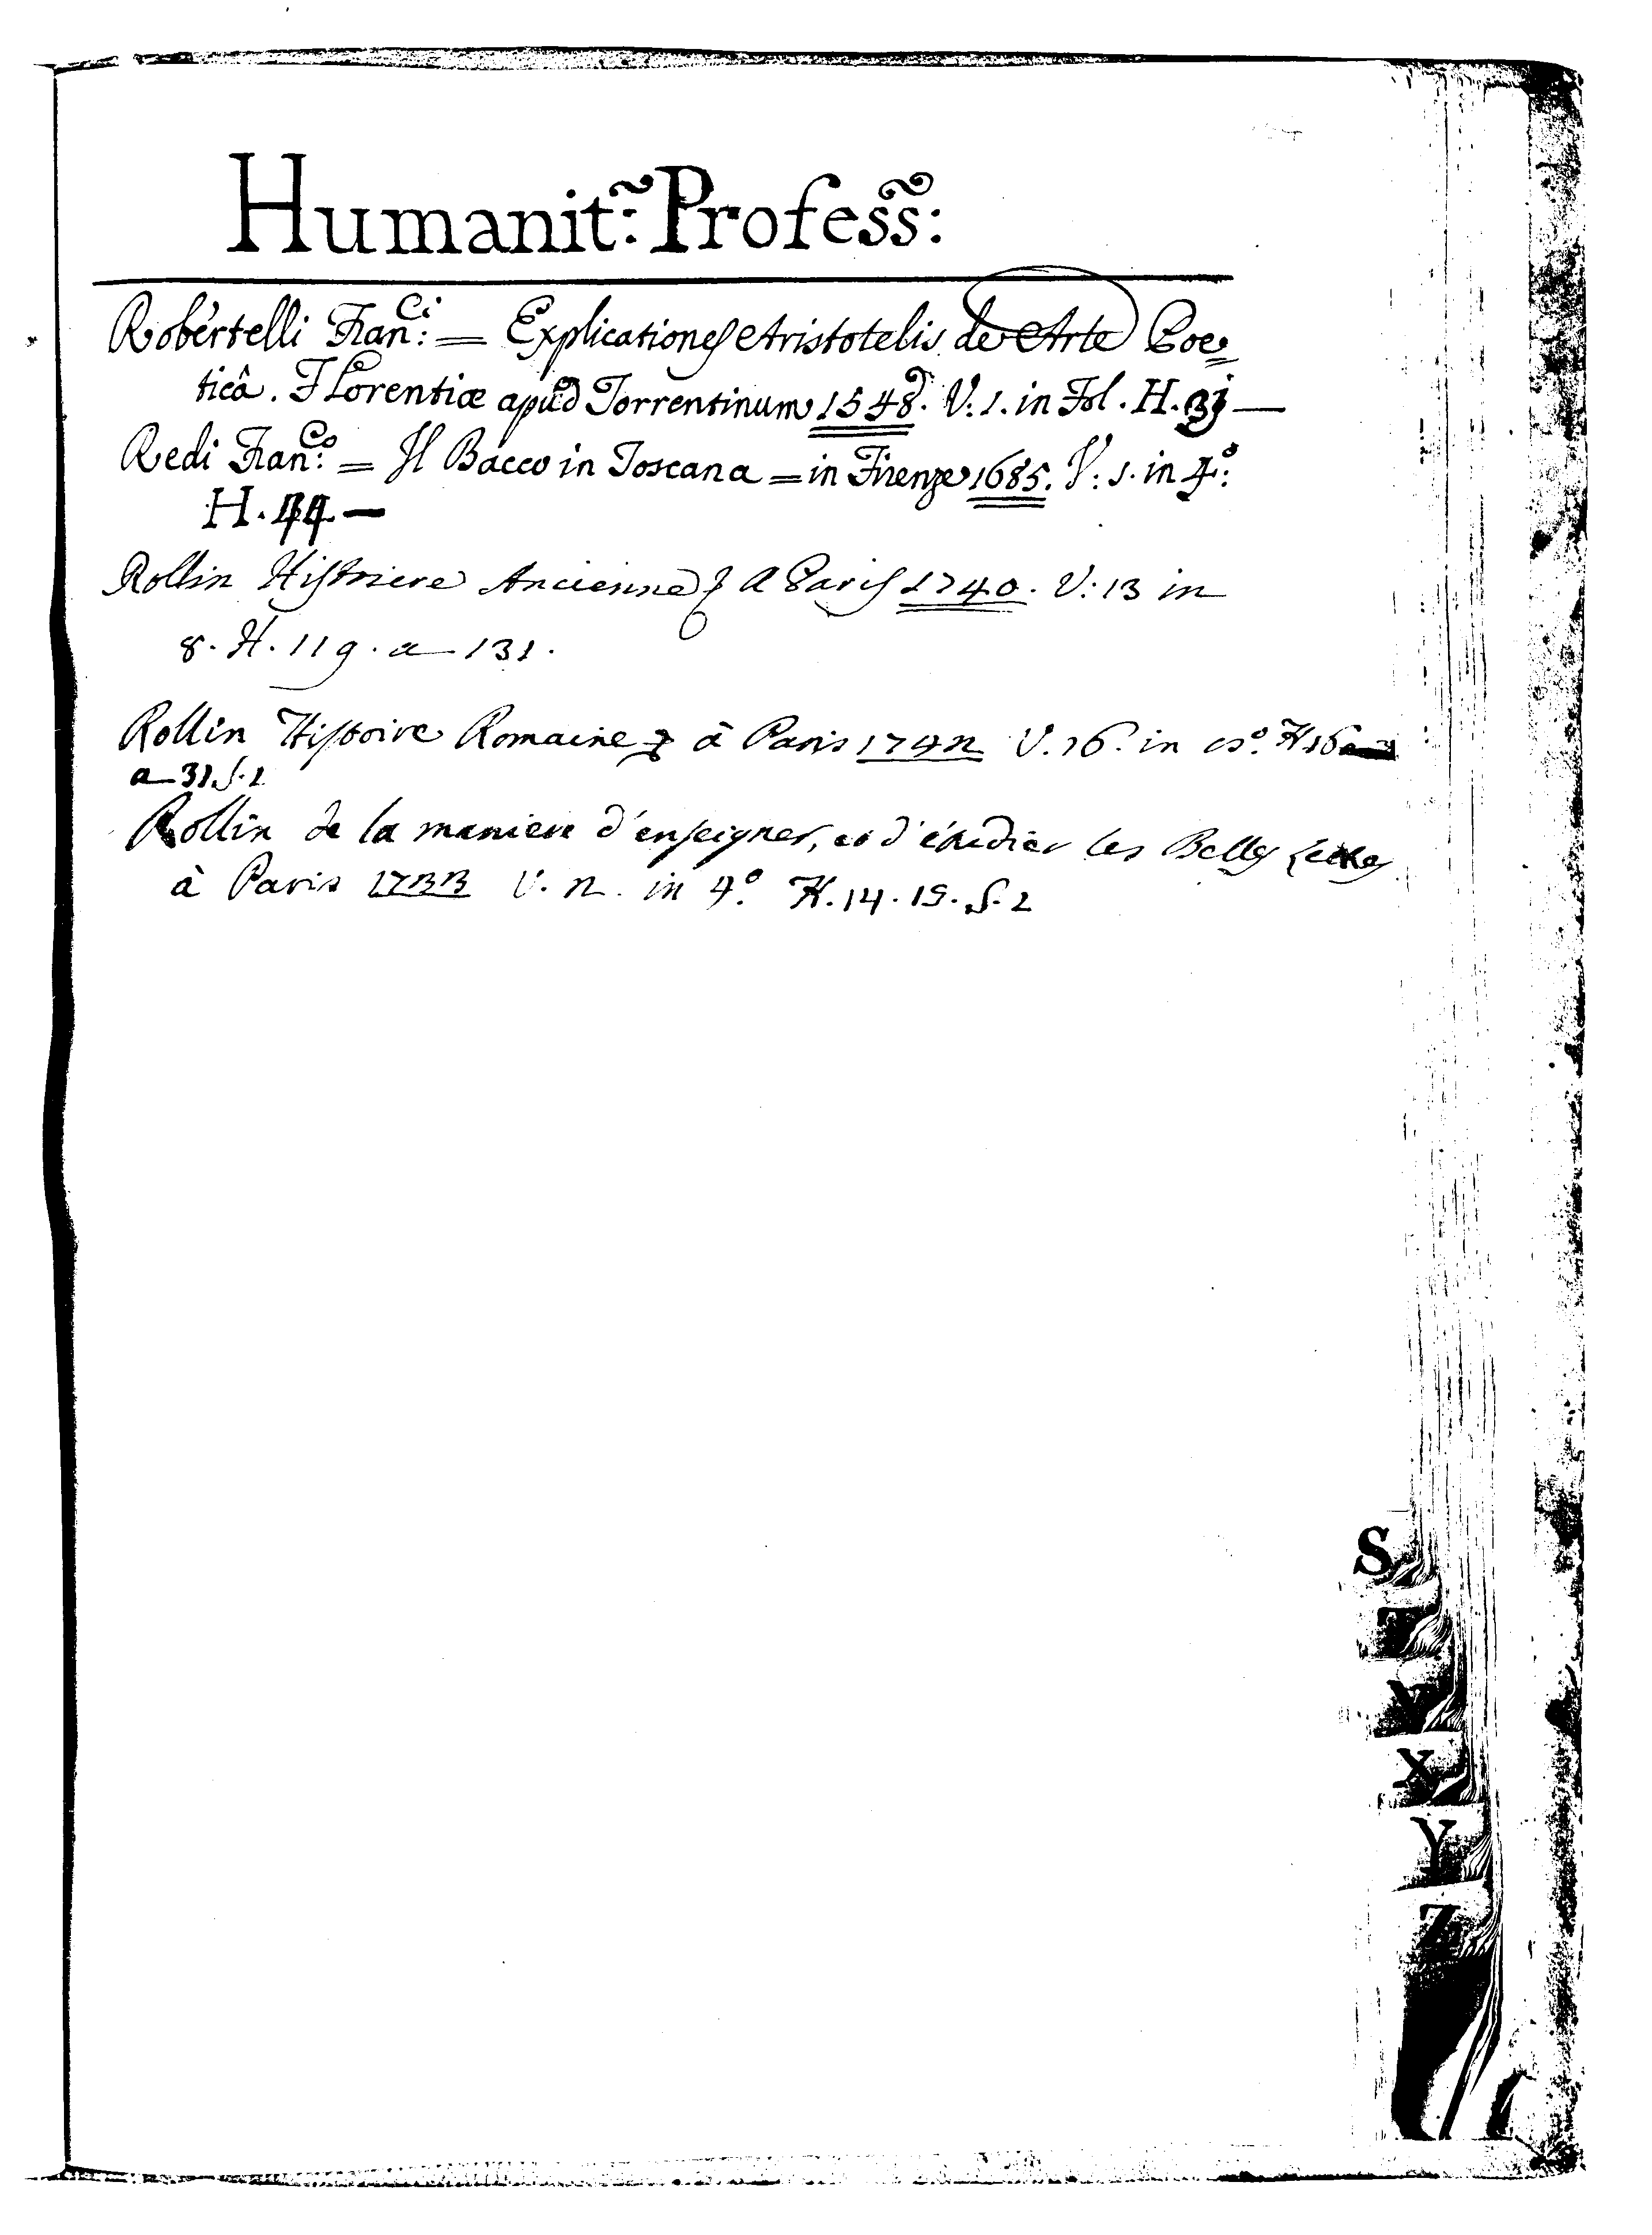 Humanit: Profess:
Robertelli Fran:ci = Explicationes Aristotelis de Arte Poe=
ticâ. Florentiæ apud Torrentinum 1548. V. 1. in Fol. H. 31 —
Redi Fran:co = Il Bacco in Toscana = in Firenze 1685. V: 1. in 4o:
H. 44 —
Rollin Histoiere Ancienne & A Paris 1740. V: 13 in
8. H. 119. a 131.
Rollin Histoire Romaine & à Paris 1742 V. 16. in 8o. H 16
a 31. S. 2
Rollin de la maniere d'enseigner, et d'étudier les Belles Lettres
à Paris 1733 V. 2. in 4o. H. 14. 15. S. 2
S
T
V
X
Y
Z